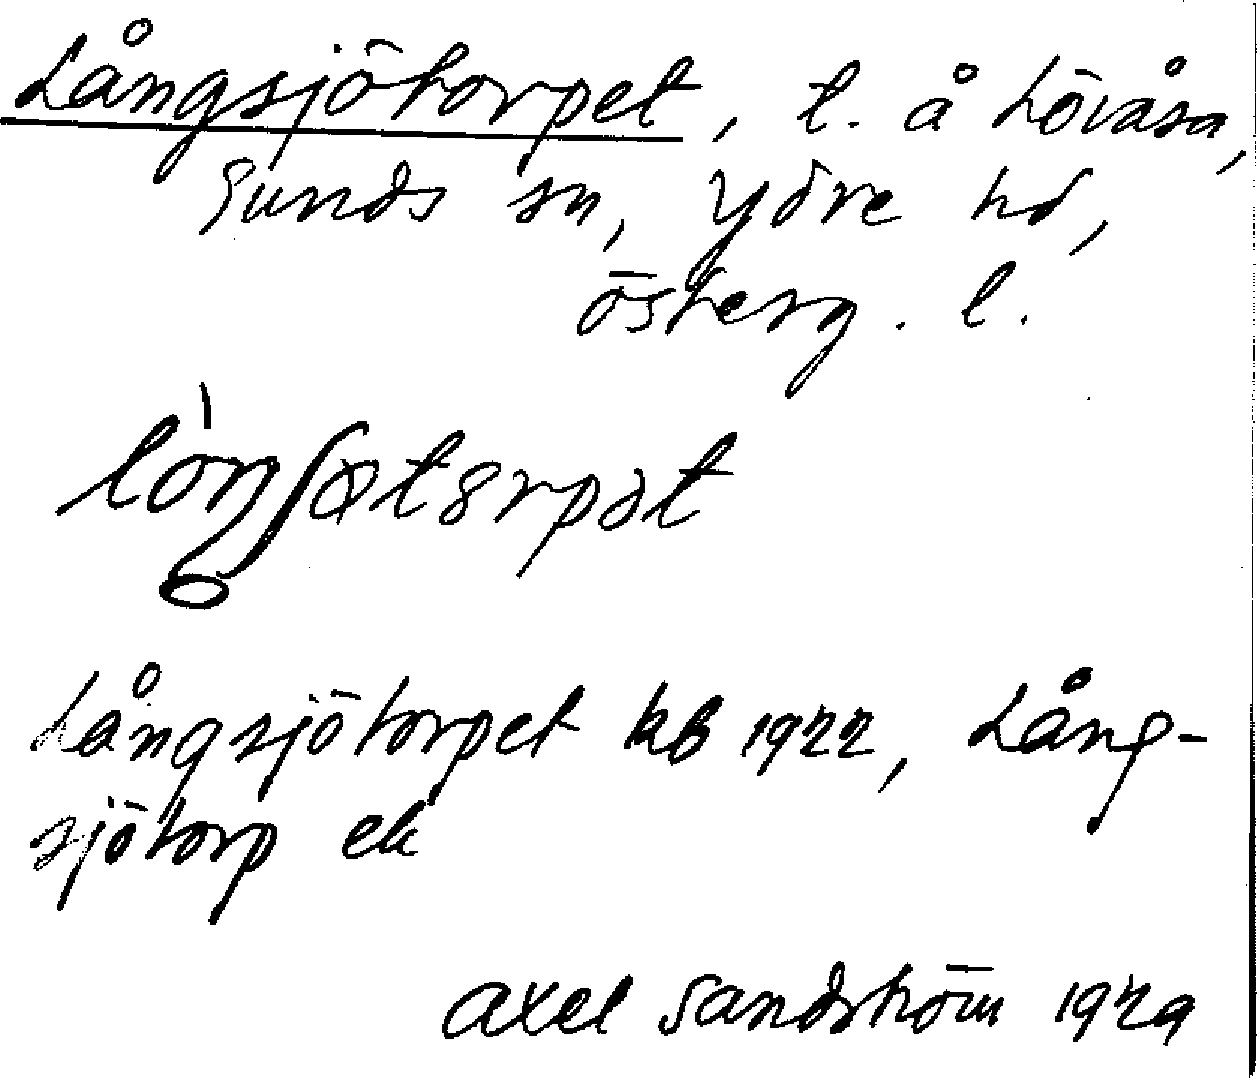 Långsjötorpet, t. å Lövåsa,
Sunds sn, Ydre hd,
Österg. l.
Långsjötorpet kb 1922, Lång-
sjötorp ek
Axel Sandström 1929